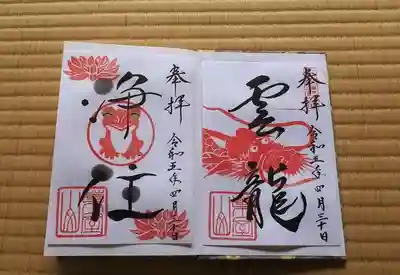 奉拝
令和五年四月三十日
雲龍
奉拝
令和五年四月三十日
浄住